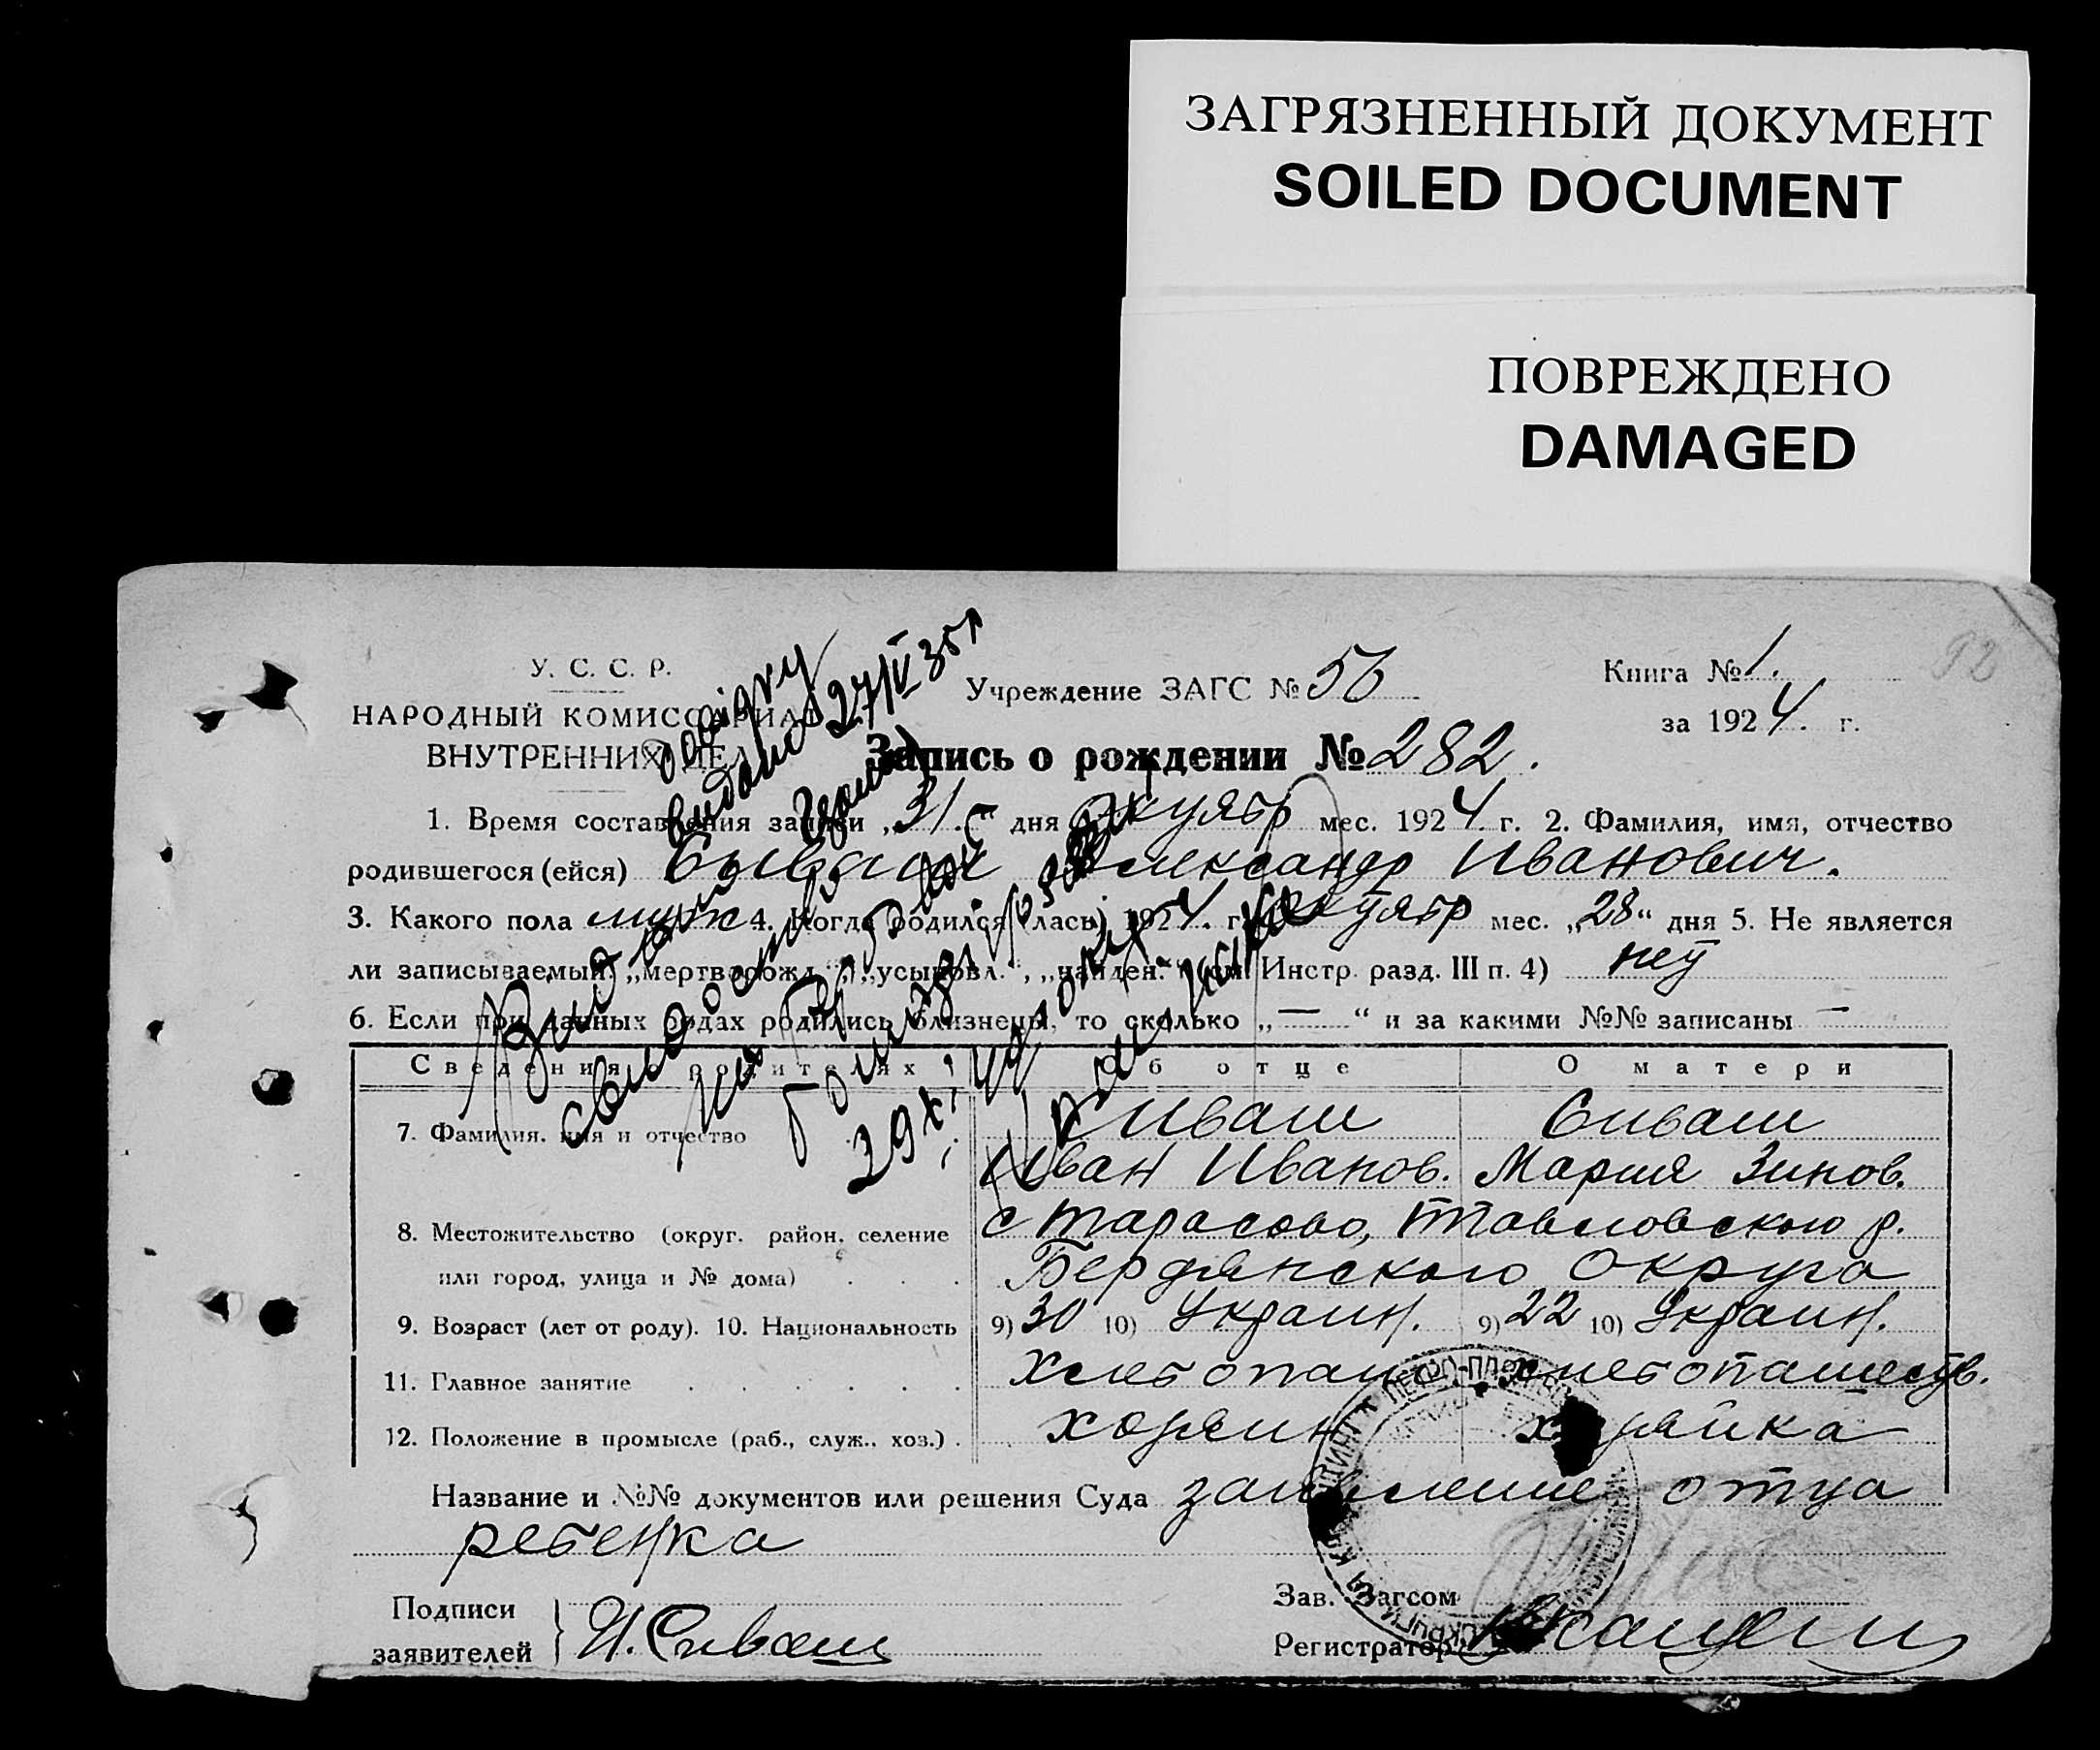 ЗАГРЯЗНЕННЫЙ ДОКУМЕНТ
SOILED DOCUMENT
ПОВРЕЖДЕНО
DAMAGED
92
У. С. С. Р.
НАРОДНЫЙ КОМИССАРИАТ
ВНУТРЕННИХ ДЕЛ
Учреждение ЗАГС № 56
Книга № 1.
за 1924. г.
Запись о рождении № 282.
довідку
видано 27/IV 35 р
1. Время составления записи „31“ дня октябр мес. 1924. г. 2. Фамилия, имя, отчество
родившегося (ейся) Сиваш Александр Иванович.
3. Какого пола муж 4. Когда родился (лась) 1924. г. октябр мес. „28“ дня 5. Не является
ли записываемый: „мертворожд.“, „усыновл.“, „найден.“ (см. Инстр. разд. III п. 4) нет
6. Если при данных родах родились близнецы, то сколько „—“ и за какими №№ записаны —
Сведения о родителях Об отце О матери
7. Фамилия, имя и отчество Сиваш Сиваш
Иван Иванов. Мария Зинов.
8. Местожительство (округ. район, селение с Тарасово, Павловского р.
или город, улица и № дома) Бердянского Округа
9. Возраст (лет от роду). 10. Национальность 9) 30 10) Украин. 9) 22 10) Украин.
11. Главное занятие хлебопаш хлебопашеств.
12. Положение в промысле (раб., служ., хоз.) хозяин хозяйка
Название и №№ документов или решения Суда заявление отца
ребенка
Подписи
заявителей И. Сиваш
Зав. Загсом
Регистратор